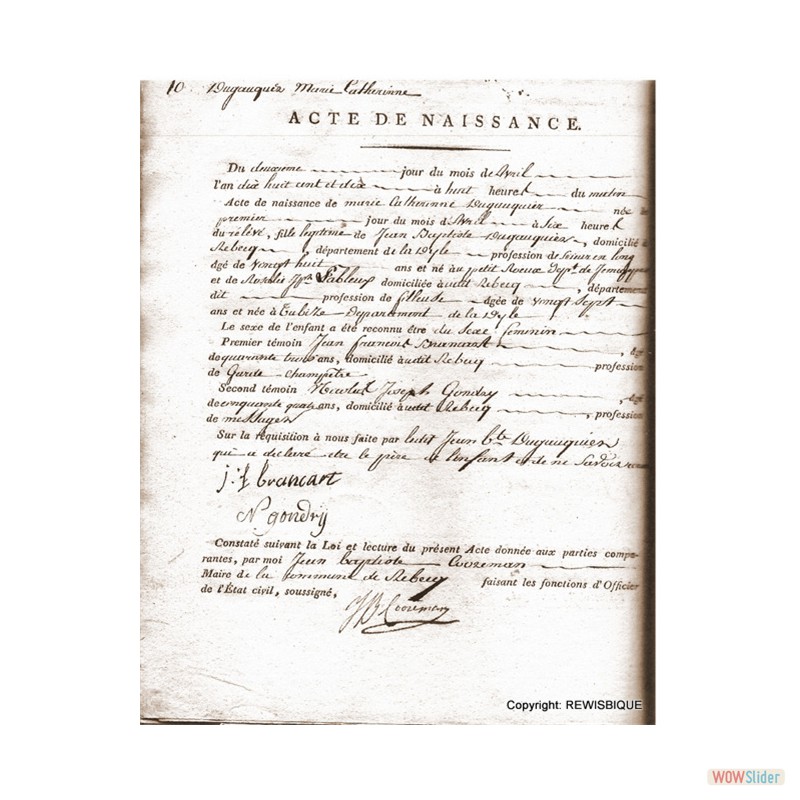 10 Dugauquier Marie Catherinne
ACTE DE NAISSANCE.
Du deuxieme jour du mois de Avril
l'an dix huit cent et dix à huit heures du matin
Acte de naissance de marie Catherinne Dugauquier née le
premier jour du mois d'Avril à six heures
du relévé, fille legitime de Jean Baptiste Dugauquier, domicilié à
Rebecq, département de la Dyle profession de
âgé de vingt huit ans et né au petit Roeux Dept. de Jemappes
et de Rosalie Jph. domiciliée audit Rebecq, département
dit profession de fileuse âgée de vingt sept
ans et née à Tubize Departement de la Dyle
Le sexe de l'enfant a été reconnu être du sexe feminin
Premier témoin Jean francois Brancart, âgé
de quarante trois ans, domicilié audit Rebecq profession
de Garde champêtre
Second témoin Nicolas Joseph Gondry, âgé
de cinquante quatre ans, domicilié audit Rebecq, profession
de messager
Sur la réquisition à nous faite par ledit Jean bte Dugauquier
qui a declaré etre le père de l'enfant et de ne savoir
j: f brancart
N gondry
Constaté suivant la Loi et lecture du présent Acte donnée aux parties compa-
rantes, par moi Jean baptiste Cooreman
Maire de la Commune de Rebecq faisant les fonctions d'Officier
de l'État civil, soussigné,
JB Cooreman
Copyright: REWISBIQUE
WOWSlider